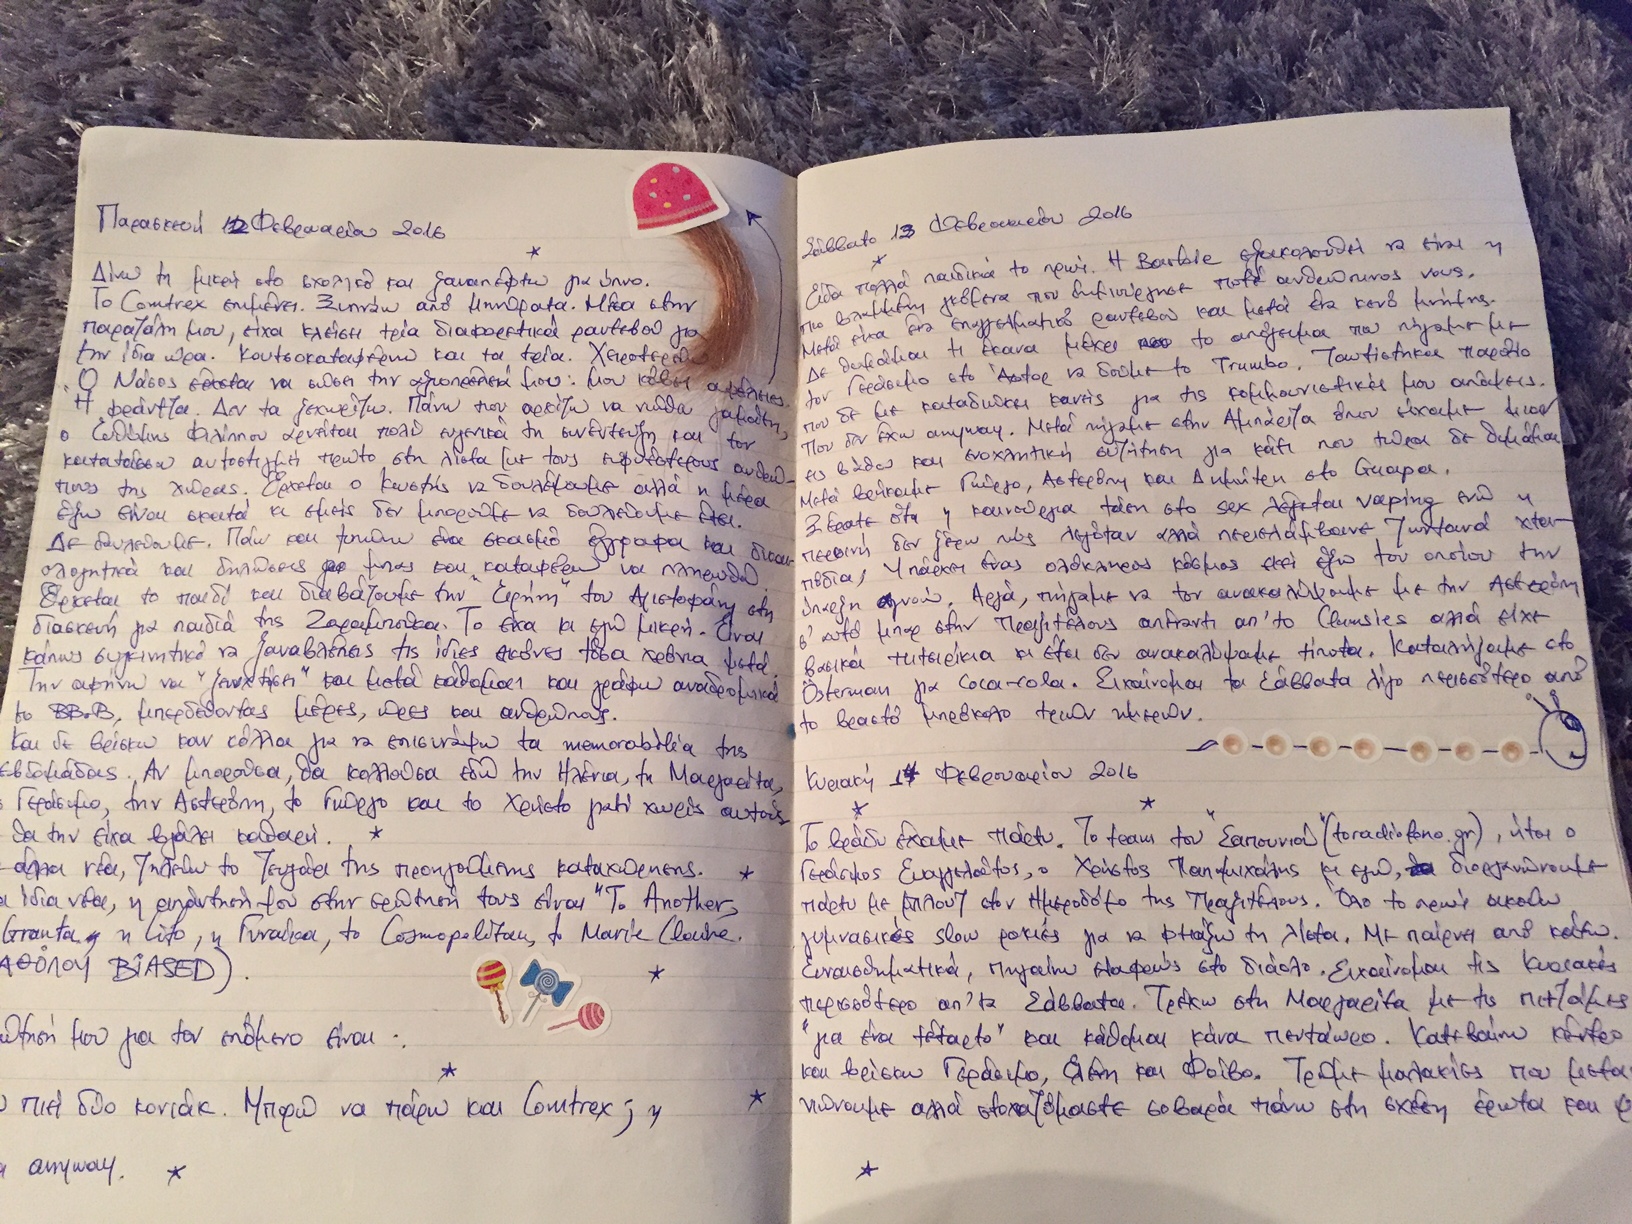 Παρασκευή 12 Φεβρουαρίου 2016
Δίνω τη μικρή στο σχολικό και ξαναπέφτω για ύπνο.
Το Comtrex επιμένει. Ξυπνάω από μηνύματα. Μέσα στην
παραζάλη μου, είχα κλείσει τρία διαφορετικά ραντεβού για
την ίδια ώρα. Κουτσοκαταφέρνω και τα τρία.
Ο Νάσος να σώσει την αξιοπρέπειά μου: μου κόβει αφέλειες.
Ή φράντζα. Δεν τα ξεχωρίζω. Πάνω που αρχίζω να νιώθω γαμάτη,
ο Φιλίππου αρνείται πολύ ευγενικά τη συνέντευξη και τον
κατατάσσω αυτοστιγμή πρώτο στη λίστα με τους ευφυέστερους ανθρώ-
πους της χώρας. Έρχεται ο Κωστής να δουλέψουμε αλλά η μέρα
έξω είναι σκατά κι εμείς δεν μπορούμε να δουλεύουμε έτσι.
Δε δουλεύουμε. Πάω και τυπώνω ένα σκασμό έγγραφα και δικαι-
ολογητικά και δηλώσεις μπας και καταφέρω να πληρωθώ.
Έρχεται το παιδί και διαβάζουμε την "Ειρήνη" του Αριστοφάνη στη
διασκευή για παιδιά της Ζαραμπούκα. Το είχα κι εγώ μικρή. Είναι
κάπως συγκινητικό να ξαναβλέπεις τις ίδιες εικόνες τόσα χρόνια μετά.
Την αφήνω να και μετά κάθομαι και γράφω αναδρομικά
το BB.B, μπερδεύοντας μέρες, ώρες και ανθρώπους.
Και δε βρίσκω καν κόλλα για να επισυνάψω τα memorabilia της
εβδομάδας. Αν μπορούσα, θα κολλούσα εδώ την Ηλένια, τη Μαργαρίτα,
Γεράσιμο, την Αστερόπη, το Γιώργο και το Χρήστο γιατί χωρίς αυτούς
θα την είχα βγάλει καθαρή.
άλλα νέα, ζηλεύω το ζευγάρι της προηγούμενης καταχώρησης.
ίδια νέα, η απάντησή μου στην ερώτησή τους είναι "Το Another,
Granta, η Lifo, η Γυναίκα, το Cosmopolitan, το Marie Claire.
ΚΑΘΟΛΟΥ BIASED).
μου για τον επόμενο είναι:
πιει δύο κονιάκ. Μπορώ να πάρω και Comtrex; ή
anyway.
Σάββατο 13 Φεβρουαρίου 2016
Είδα πολλά παιδικά το πρωί. Η Barbie εξακολουθεί να είναι η
πιο γκόμενα που δημιούργησε ποτέ ανθρώπινος νους.
Μετά είχα ένα επαγγελματικό ραντεβού και μετά ένα κενό μνήμης.
Δε θυμάμαι τι έκανα μέχρι το απόγευμα που πήγαμε με
τον Γεράσιμο στο Άστορ να δούμε το Trumbo. Ταυτίστηκα παρότι
που δε με καταδιώκει κανείς για τις κομμουνιστικές μου απόψεις.
Που δεν έχω anyway. Μετά πήγαμε στην Αμπάριζα όπου είχαμε μια
εις βάθος και ενοχλητική συζήτηση για κάτι που τώρα δε θυμάμαι.
Μετά βρήκαμε Γιώργο, Αστερόπη και Δημήτρη στο Guapa.
Ξέρατε ότι η καινούργια τάση στο sex λέγεται vaping ενώ η
περσινή δεν ξέρω πώς λεγόταν αλλά περιελάμβανε ζωντανά χτα-
πόδια; Υπάρχει ένας ολόκληρος κόσμος εκεί έξω του οποίου την
ύπαρξη αγνοώ. Αργά, πήγαμε να τον ανακαλύψουμε με την Αστερόπη
σ' αυτό μπαρ στην Πραξιτέλους απέναντι απ' το Clumsies αλλά είχε
βασικά πιτσιρίκια κι έτσι δεν ανακαλύψαμε τίποτα. Καταλήξαμε στο
Osterman για Coca-cola. Σιχαίνομαι τα Σάββατα λίγο περισσότερο από
το βραστό μπρόκολο τριών ημερών.
Κυριακή 14 Φεβρουαρίου 2016
Το βράδυ έχουμε πάρτυ. Το team του "Σαπουνιού" (toradiofono.gr), ήτοι ο
Γεράσιμος Ευαγγελάτος, ο Χρήστος Παπαμιχάλης κι εγώ, διοργανώνουμε
πάρτυ με μπλουζ στον Ημεροδόμο της Πραξιτέλους. Όλο το πρωί ακούω
γυμνασιακές slow ροκιές για να φτιάξω τη λίστα. Με παίρνει από κάτω.
Συναισθηματικά, πηγαίνω σαφώς στο διάολο. Σιχαίνομαι τις Κυριακές
περισσότερο απ' τα Σάββατα. Τρέχω στη Μαργαρίτα με τις πιτζάμες
"για ένα τέταρτο" και κάθομαι κάνα πεντάωρο. Κατεβαίνω κέντρο
και βρίσκω Γεράσιμο, Ελένη και Φοίβο. Τρώμε μαλακίες που μετα-
νιώνουμε αλλά στοχαζόμαστε σοβαρά πάνω στη σχέση έρωτα και φ